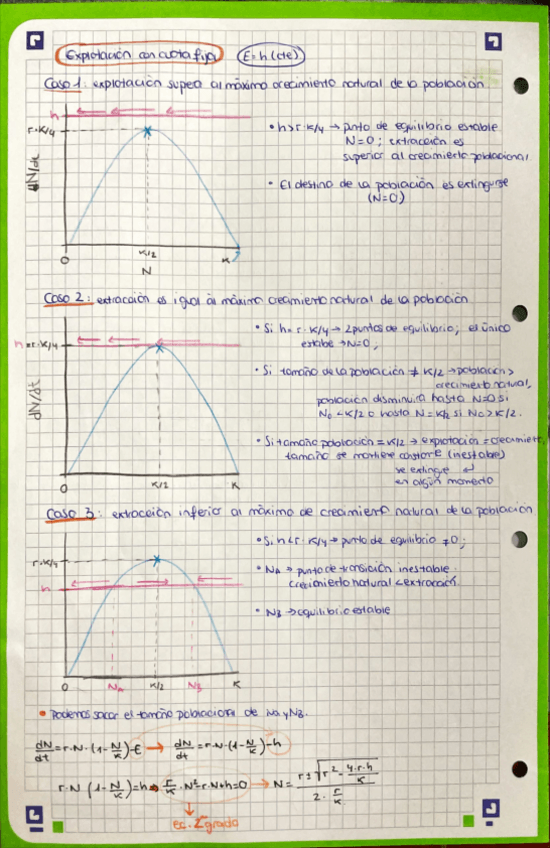 Explotación con cuota fija E=h (cte)
Caso 1: explotación supera al máximo crecimiento natural de la población
h
r·K/4
dN/dt
0 K/2 K
N
• h>r·K/4 → punto de equilibrio estable
N=0; extracción es
superior al crecimiento poblacional
• El destino de la población es extinguirse
(N=0)
Caso 2: extracción es igual al máximo crecimiento natural de la población
h=r·K/4
0 K/2 K
• Si h=r·K/4 → 2 puntos de equilibrio; el único
estable → N=0;
• Si tamaño de la población ≠ K/2 → población >
crecimiento natural,
población disminuirá hasta N=0 si
N0<K/2 o hasta N=K/2 si N0>K/2.
• Si tamaño población = K/2 → explotación = crecimiento,
tamaño se mantiene constante (inestable)
se extingue
en algún momento
Caso 3: extracción inferior al máximo de crecimiento natural de la población
r·K/4
h
0 NA K/2 NB K
• Si h<r·K/4 → punto de equilibrio ≠0;
• NA → punto de transición inestable.
crecimiento natural < extracción.
• NB → equilibrio estable
• Podemos sacar el tamaño poblacional de NA y NB.
dN/dt = r·N·(1-N/K)-E → dN/dt = r·N·(1-N/K)-h
r·N(1-N/K)=h → r/K·N²-r·N+h=0 → N= r±√(r²-4·r·h/K) / 2·r/K
ec. 2º grado